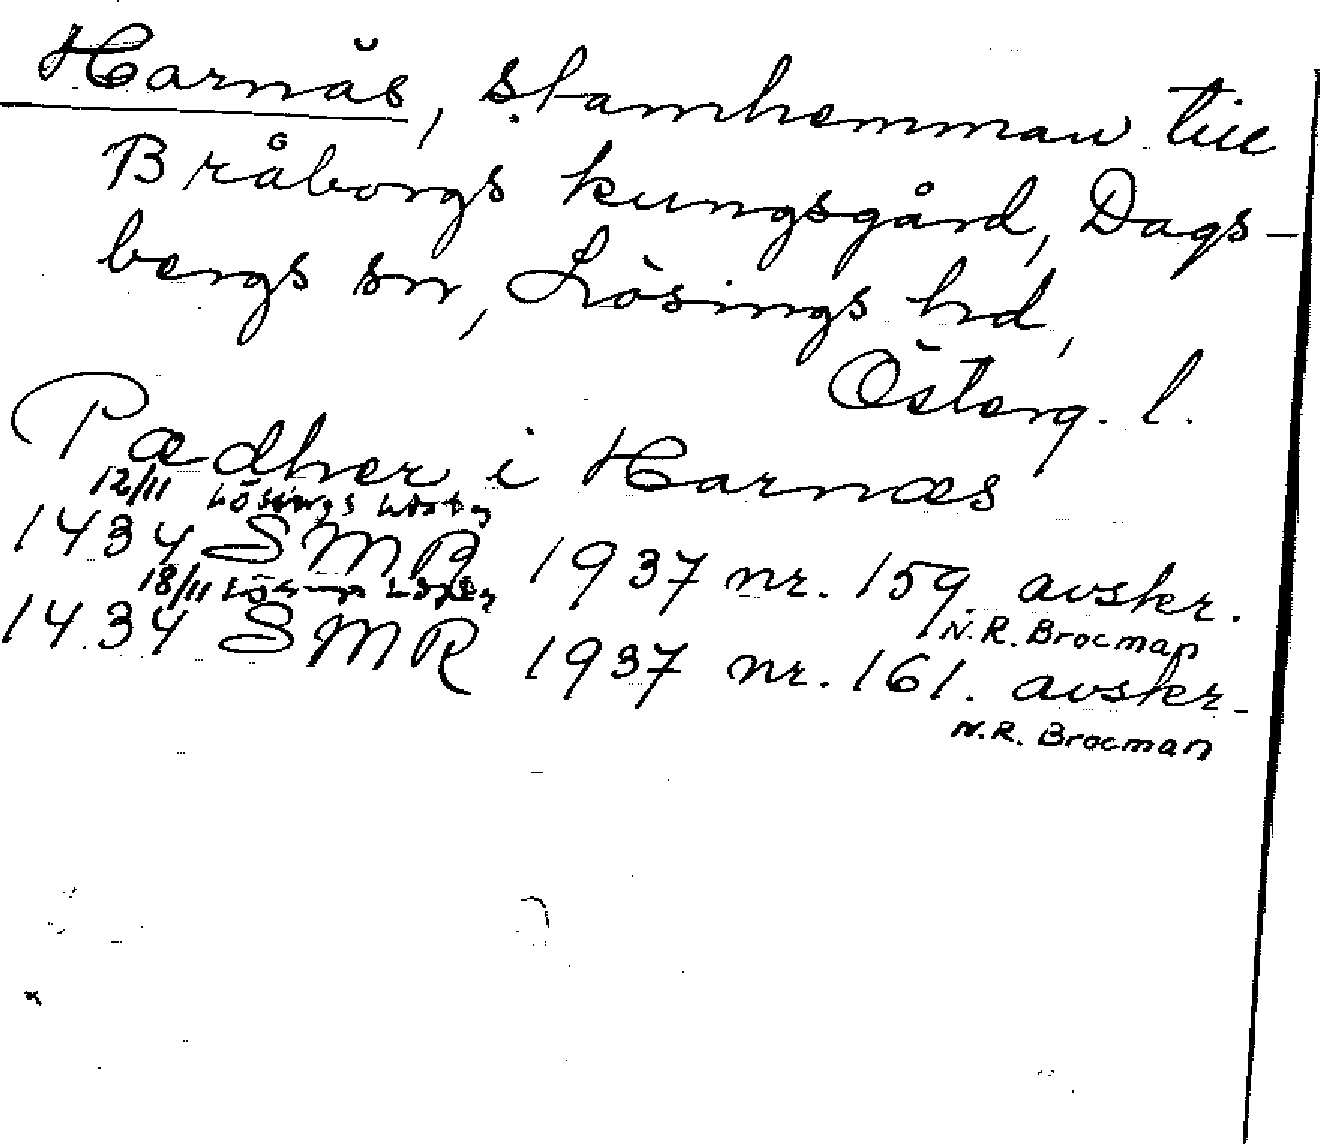 Harnäs, stamhemman till
Bråborgs kungsgård, Dags-
bergs sn, Lösings hd,
Österg. l.
Pædher i Harnæs
12/11 Lösings
1434 SMR 1937 nr. 159. avskr.
N.R. Brocman
18/11 Lösings
1434 SMR 1937 nr. 161. avskr.
N.R. Brocman